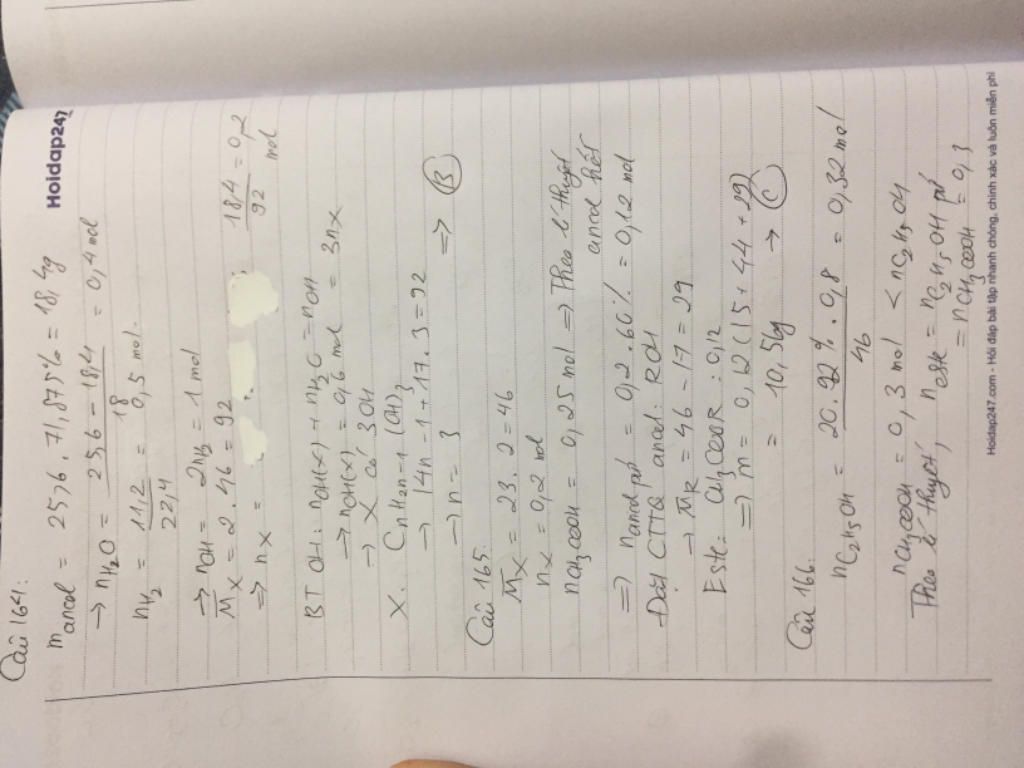 Câu 164:
Hoidap247
m ancol = 25,6 . 71,875% = 18,4g
→ nH2O = (25,6 - 18,4)/18 = 0,4 mol
nH2 = 11,2/22,4 = 0,5 mol.
→ nOH = 2nH2 = 1 mol
M̄X = 2 . 46 = 92
⇒ nX = 18,4/92 = 0,2 mol
BT OH: nOH(X) + nH2O = nOH
→ nOH(X) = 0,6 mol = 3nX
→ X có 3OH
X: CnH2n-1(OH)3
→ 14n - 1 + 17.3 = 92
→ n = 3 ⇒ (B)
Câu 165.
M̄X = 23.2 = 46
nX = 0,2 mol
nCH3COOH = 0,25 mol ⇒ Theo lí thuyết
ancol hết
⇒ nancol pứ = 0,2 . 60% = 0,12 mol
Đặt CTTQ ancol: ROH
→ M̄R = 46 - 17 = 29
Este: CH3COOR : 0,12
⇒ m = 0,12 (15 + 44 + 29)
= 10,56g → (C)
Câu 166.
nC2H5OH = 20 . 92% . 0,8/46 = 0,32 mol
nCH3COOH = 0,3 mol < nC2H5OH
Theo lí thuyết, neste = nC2H5OH pứ
= nCH3COOH = 0,3
Hoidap247.com - Hỏi đáp bài tập nhanh chóng, chính xác và luôn miễn phí